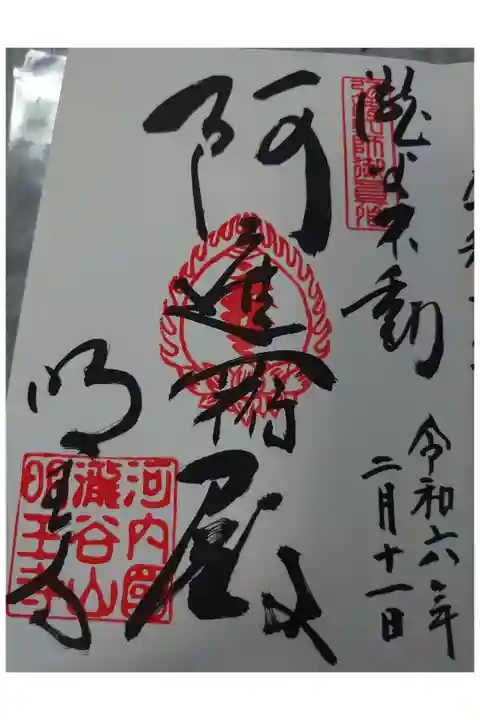 瀧谷不動
令和六年
二月十一日
阿遮羅殿
明王寺
河内國
瀧谷山
明王寺